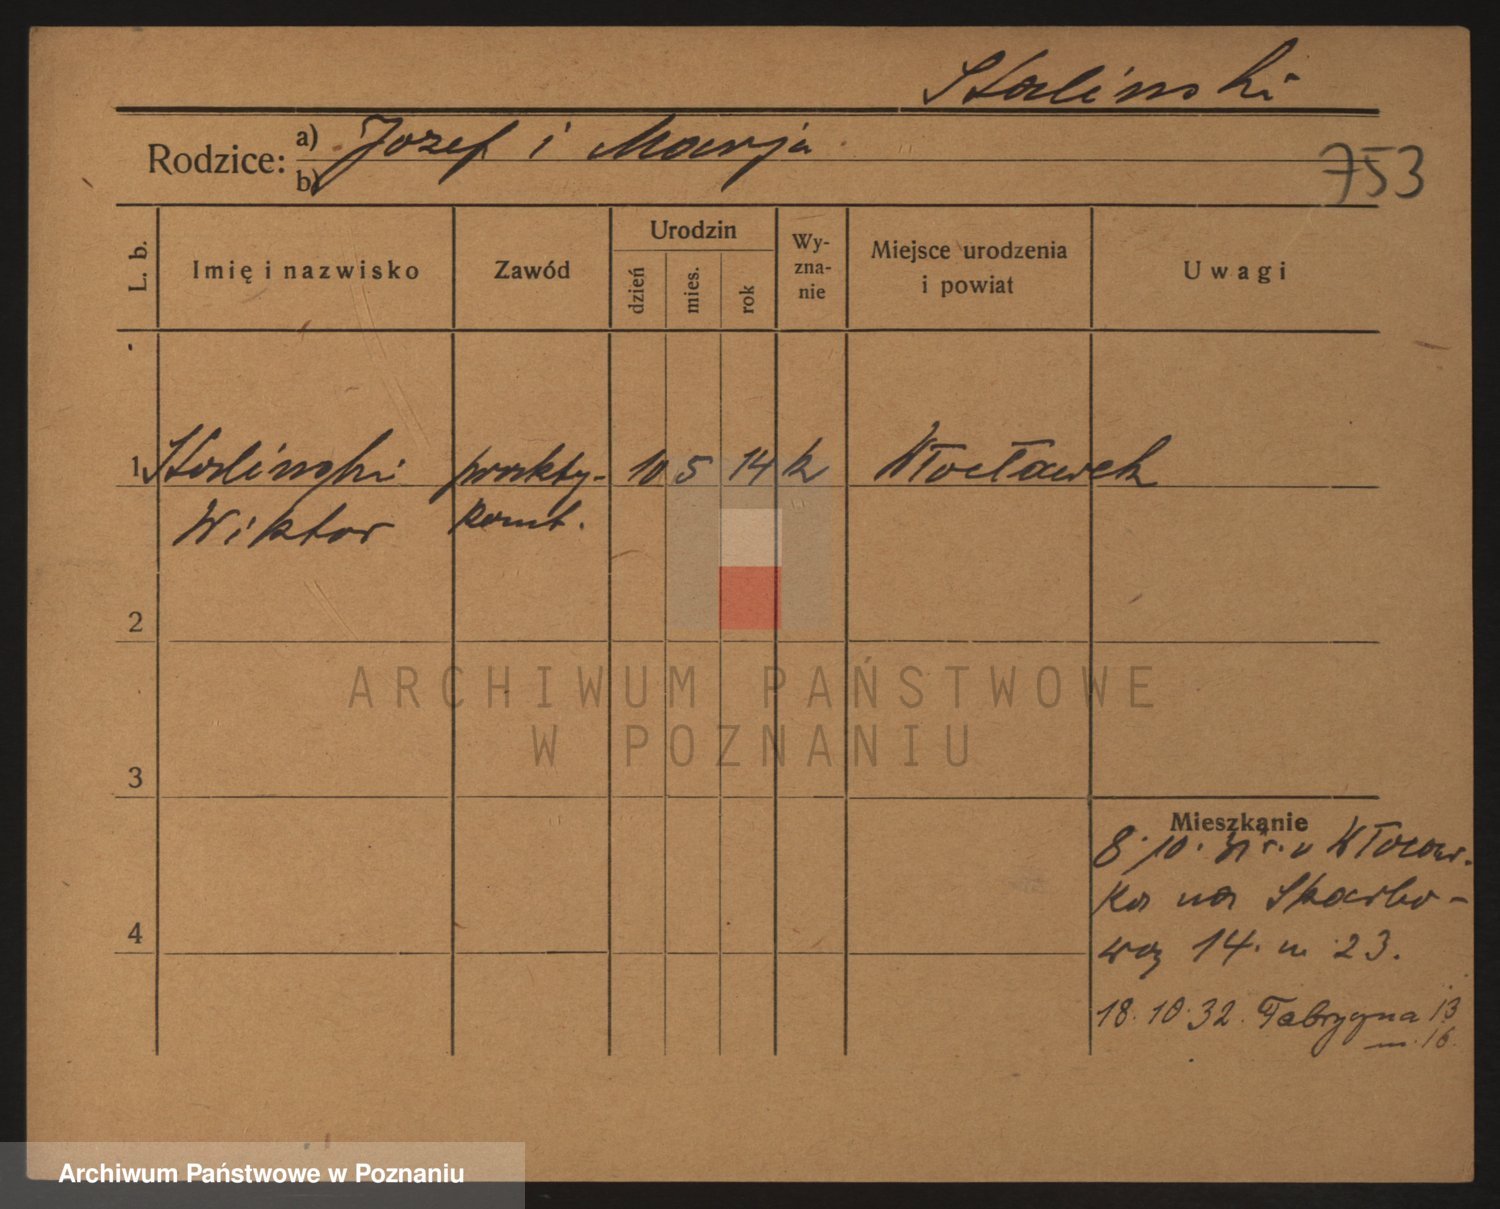 Stalinski
Rodzice: a) Jozef i Marja
b)
753
L. b.
Imię i nazwisko
Zawód
Urodzin
dzień
mies.
rok
Wy-
zna-
nie
Miejsce urodzenia
i powiat
Uwagi
1 Stalinski prakty- 10 5 14 k Włocławek
Wiktor kant.
2
ARCHIWUM PAŃSTWOWE
W POZNANIU
3
Mieszkanie
8. 10. z Włocław.
ka na Skarbo-
wą 14. m 23.
4
18.10.32. Fabryczna 13
m. 16.
Archiwum Państwowe w Poznaniu